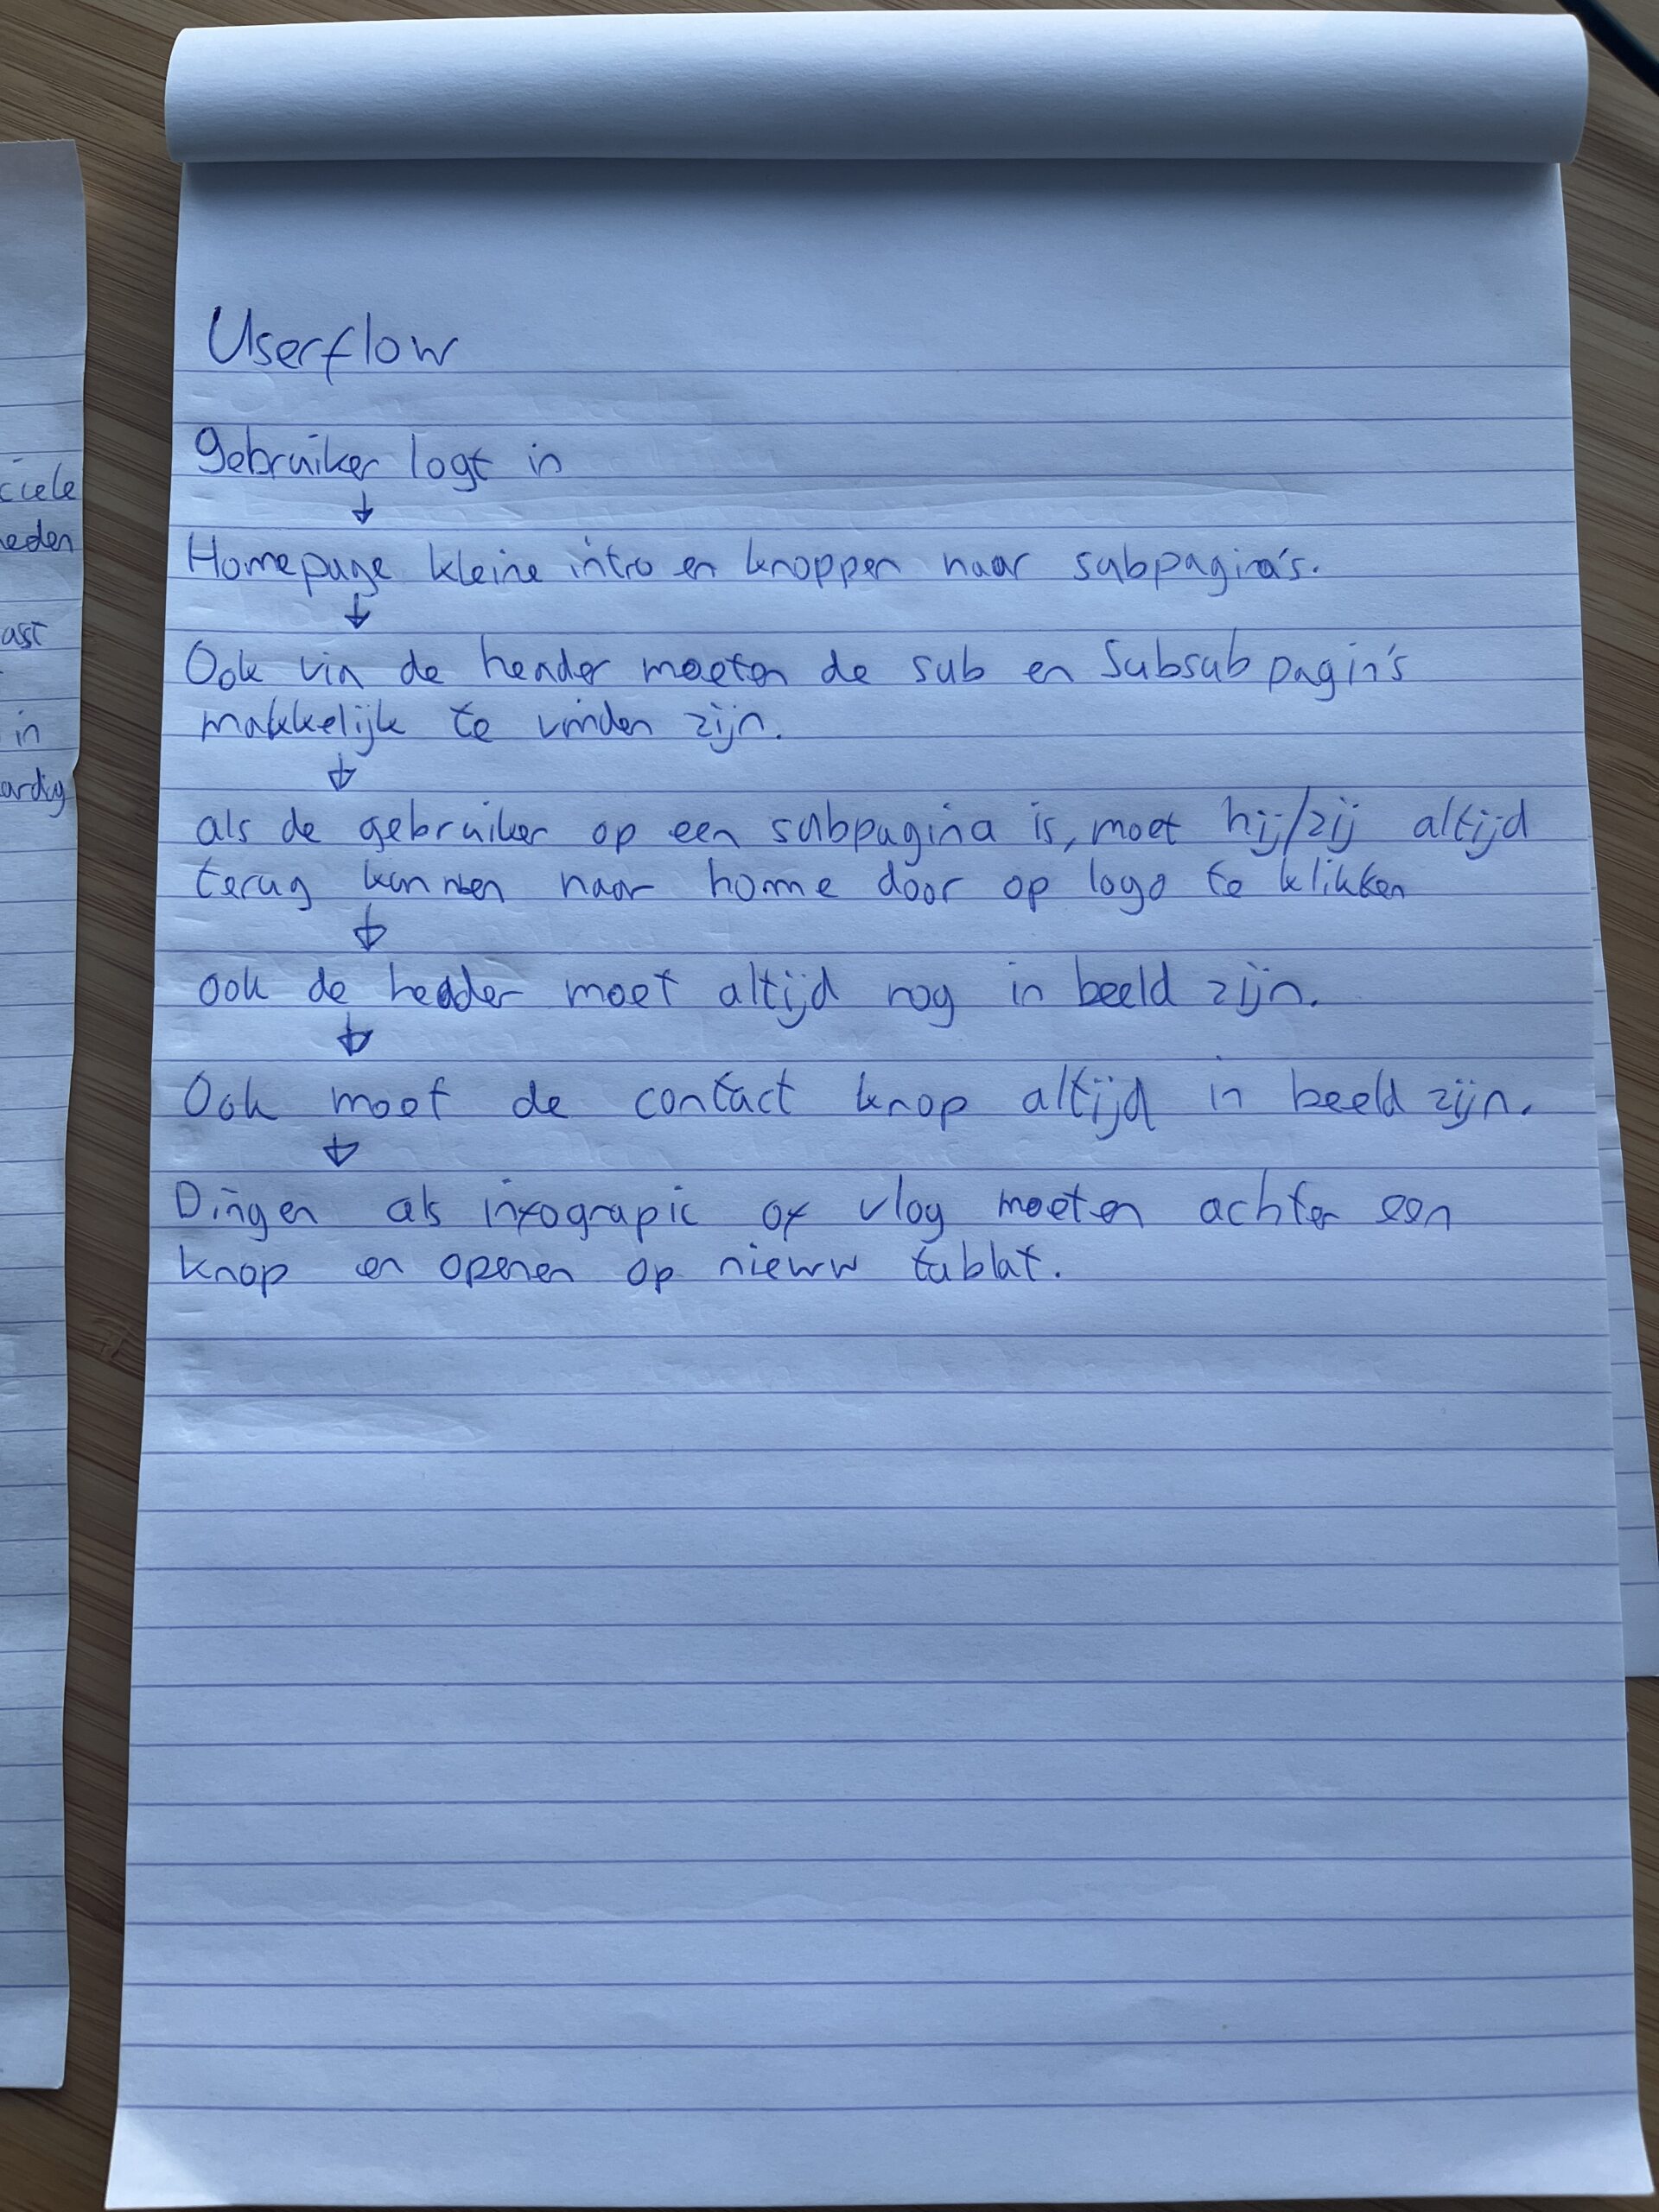 Userflow
gebruiker logt in
↓
Homepage kleine intro en knoppen naar subpagina's.
↓
Ook via de header moeten de sub en subsub pagin's
makkelijk te vinden zijn.
↓
als de gebruiker op een subpagina is, moet hij/zij altijd
terug kunnen naar home door op logo te klikken
↓
ook de header moet altijd nog in beeld zijn.
↓
Ook moet de contact knop altijd in beeld zijn.
↓
Dingen als infograpic of vlog moeten achter een
knop en openen op nieuw tablat.
ciele
heden
ast
in
ardig